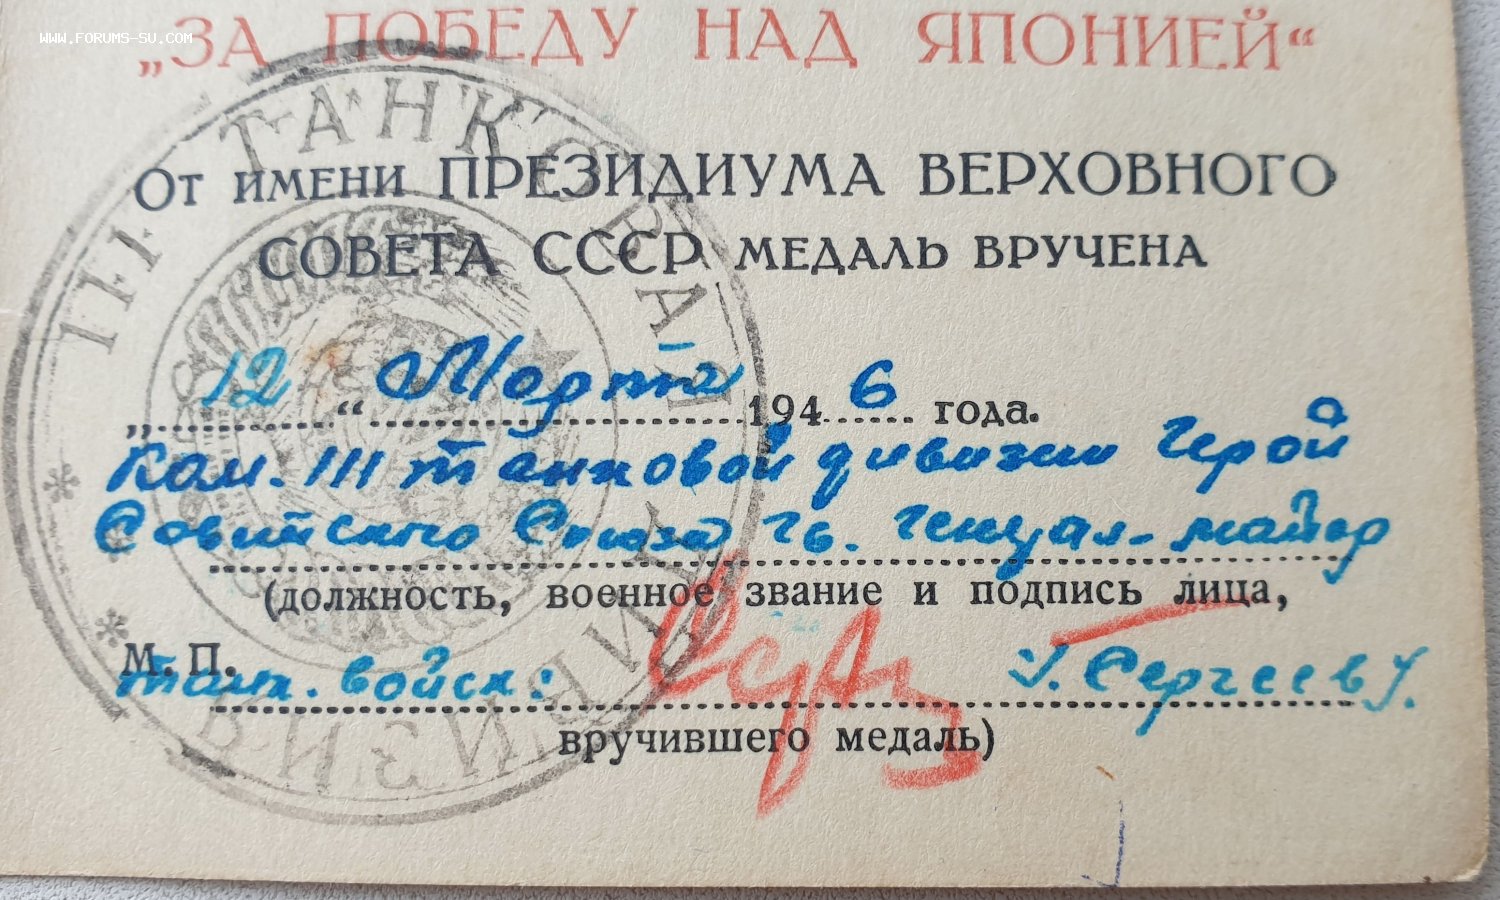 WWW.FORUMS-SU.COM
„ЗА ПОБЕДУ НАД ЯПОНИЕЙ“
От имени ПРЕЗИДИУМА ВЕРХОВНОГО
СОВЕТА СССР МЕДАЛЬ ВРУЧЕНА
„12“ Марта 1946 года.
Ком. III танковой дивизии Герой
Советского Союза гв. генерал-майор
(должность, военное звание и подпись лица,
М. П.
танк. войск: /. Сергеев /.
вручившего медаль)
111 ТАНКОВАЯ ДИВИЗИЯ